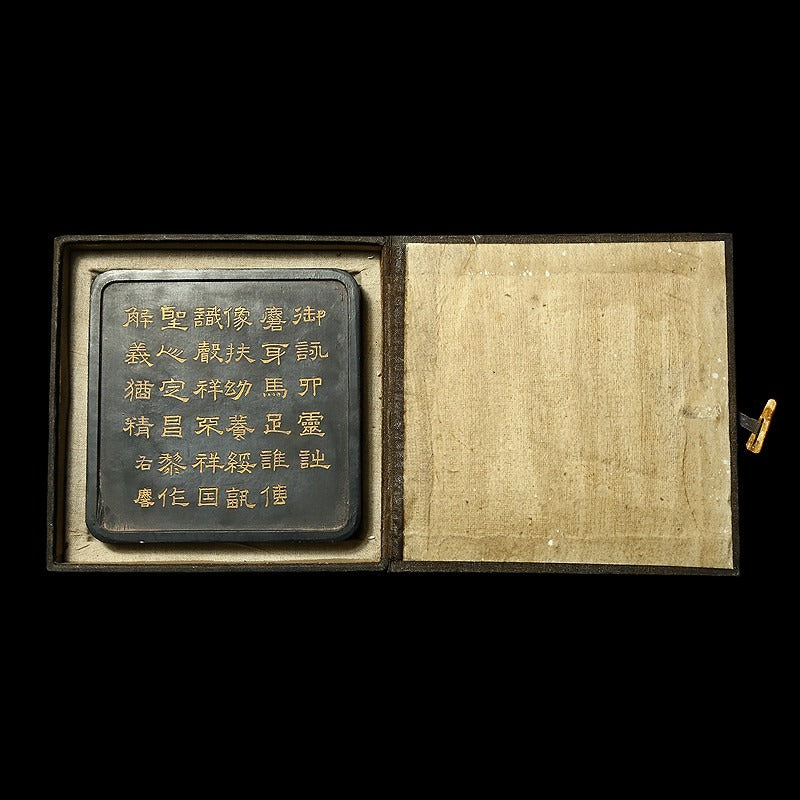 御詠卯靈詘
麕身馬足誰傳
像扶幼養綏訊
識聲祥不祥因
聖心定昌黎作
解義猶精
右麐